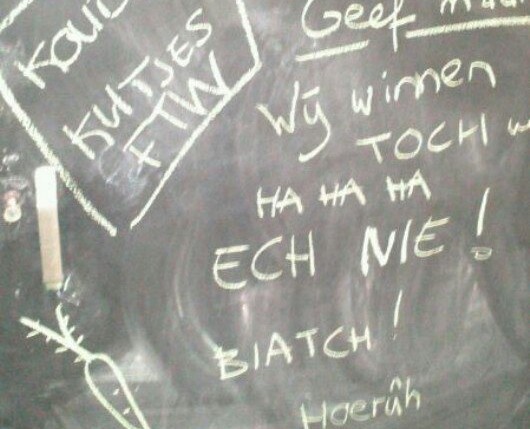 KOUD
KUTJES
FTW
Geef maar
Wij winnen
TOCH
HA HA HA
ECH NIE!
BIATCH!
Hoerûh